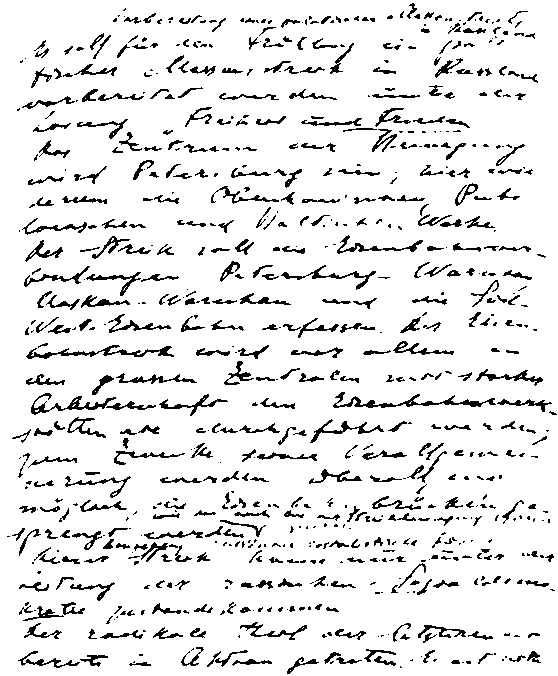 Vorbereitung eines politischen Massenstreiks
in Russland
Es soll für den Frühling ein poli-
tischer Massenstreik in Russland
vorbereitet werden unter der
Losung Freiheit und Frieden
Das Zentrum der Bewegung
wird Petersburg sein, hier wie-
derum die Obuchowschen, Puti-
lowschen und Baltischen Werke.
Der Streik soll die Eisenbahnver-
bindungen Petersburg-Warschau
Moskau-Warschau und die Süd-
West-Eisenbahn erfassen. Der Eisen-
bahnstreik wird vor allem in
den grossen Zentralen mit starker
Arbeiterschaft den Eisenbahnwerk-
stätten etc durchgeführt werden,
zum Zwecke seiner Verallgemei-
nerung werden überall wo
möglich, die Eisenbahnbrücken ge-
sprengt werden
Dieser Streik kann nur unter der
Leitung der russischen Sozialdemo-
kratie zustandekommen
Der radikale Theil der letzteren
bereits in Aktion getreten. Es ist